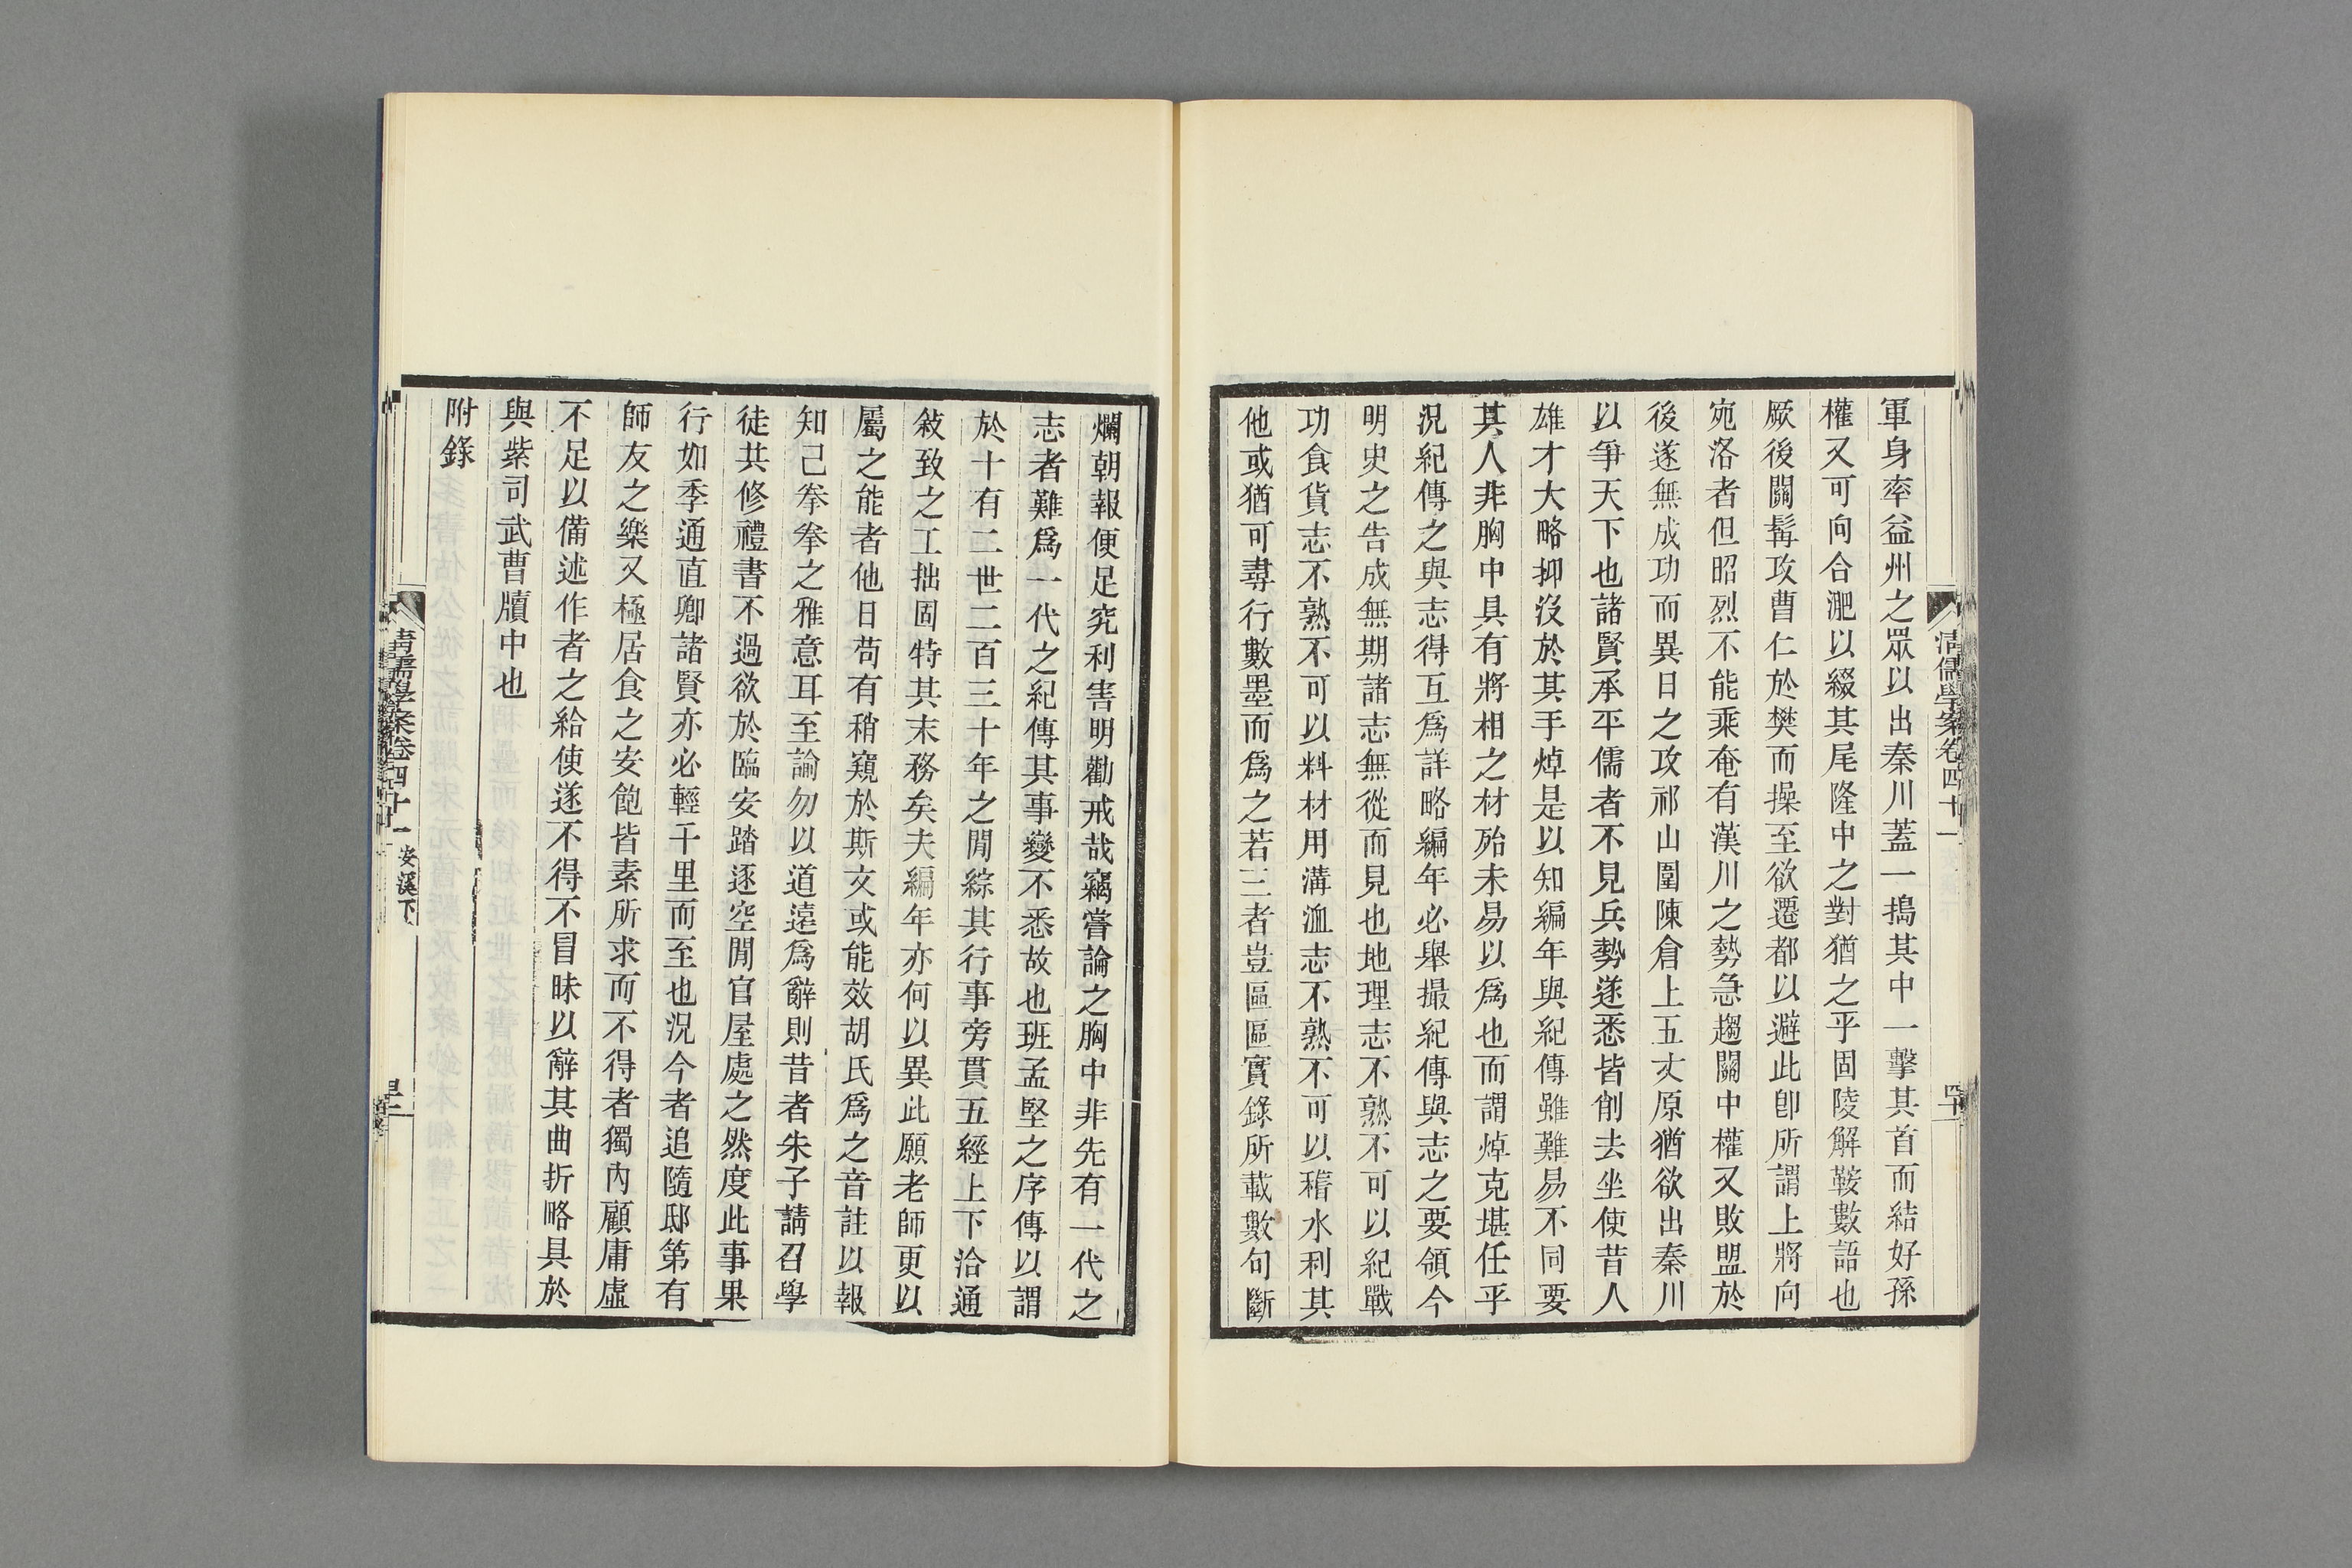 清儒學案卷四十一
軍身率益州之眾以出秦川蓋一搗其中一擊其首而結好孫
權又可向合淝以綴其尾隆中之對猶之乎固陵解鞍數語也
厥後關髯攻曹仁於樊而操至欲遷都以避此卽所謂上將向
宛洛者但昭烈不能乘奄有漢川之勢急趨關中權又敗盟於
後遂無成功而異日之攻祁山圍陳倉上五丈原猶欲出秦川
以爭天下也諸賢承平儒者不見兵勢遂悉皆削去坐使昔人
雄才大略抑沒於其手焯是以知編年與紀傳雖難易不同要
其人非胸中具有將相之材殆未易以爲也而謂焯克堪任乎
況紀傳之與志得互爲詳略編年必舉撮紀傳與志之要領今
明史之告成無期諸志無從而見也地理志不熟不可以紀戰
功食貨志不熟不可以料材用溝洫志不熟不可以稽水利其
他或猶可尋行數墨而爲之若三者豈區區實錄所載數句斷
爛朝報便足究利害明勸戒哉竊嘗論之胸中非先有一代之
志者難爲一代之紀傳其事變不悉故也班孟堅之序傳以謂
於十有二世二百三十年之閒綜其行事旁貫五經上下洽通
敍致之工拙固特其末務矣夫編年亦何以異此願老師更以
屬之能者他日苟有稍窺於斯文或能效胡氏爲之音註以報
知己拳拳之雅意耳至諭勿以道遠爲辭則昔者朱子請召學
徒共修禮書不過欲於臨安踏逐空閒官屋處之然度此事果
行如季通直卿諸賢亦必輕千里而至也況今者追隨邸第有
師友之樂又極居食之安飽皆素所求而不得者獨內顧庸虛
不足以備述作者之給使遂不得不冒昧以辭其曲折略具於
與紫司武曹牘中也
附錄
清儒學案卷四十一 安溪下